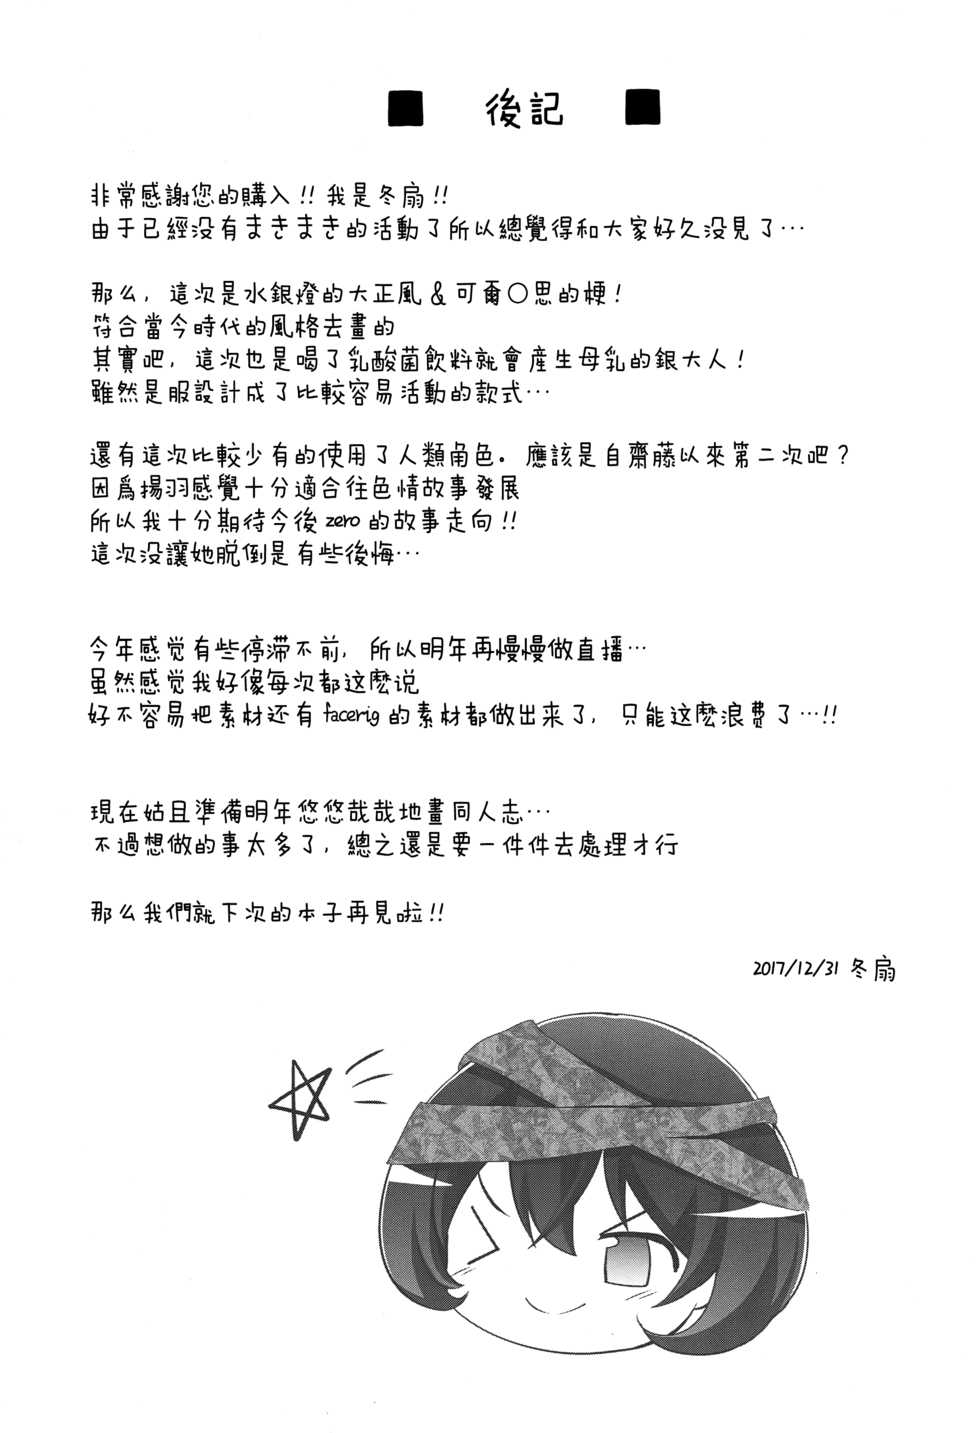 ■ 後記 ■
非常感謝您的購入!! 我是冬扇!!
由于已經没有まきまき的活動了所以總覺得和大家好久没見了…
那么, 這次是水銀燈的大正風&可爾〇思的梗!
符合當今時代的風格去畫的
其實吧, 這次也是喝了乳酸菌飲料就會産生母乳的銀大人!
雖然是服設計成了比較容易活動的款式…
還有這次比較少有的使用了人類角色. 應該是自齋藤以來第二次吧?
因爲揚羽感覺十分適合往色情故事發展
所以我十分期待今後zero的故事走向!!
這次没讓她脱倒是有些後悔…
今年感觉有些停滞不前, 所以明年再慢慢做直播…
虽然感觉我好像每次都这麽说
好不容易把素材还有facerig的素材都做出来了, 只能这麽浪费了…!!
現在姑且準備明年悠悠哉哉地畫同人志…
不過想做的事太多了, 總之還是要一件件去處理才行
那么我們就下次的本子再見啦!!
2017/12/31 冬扇